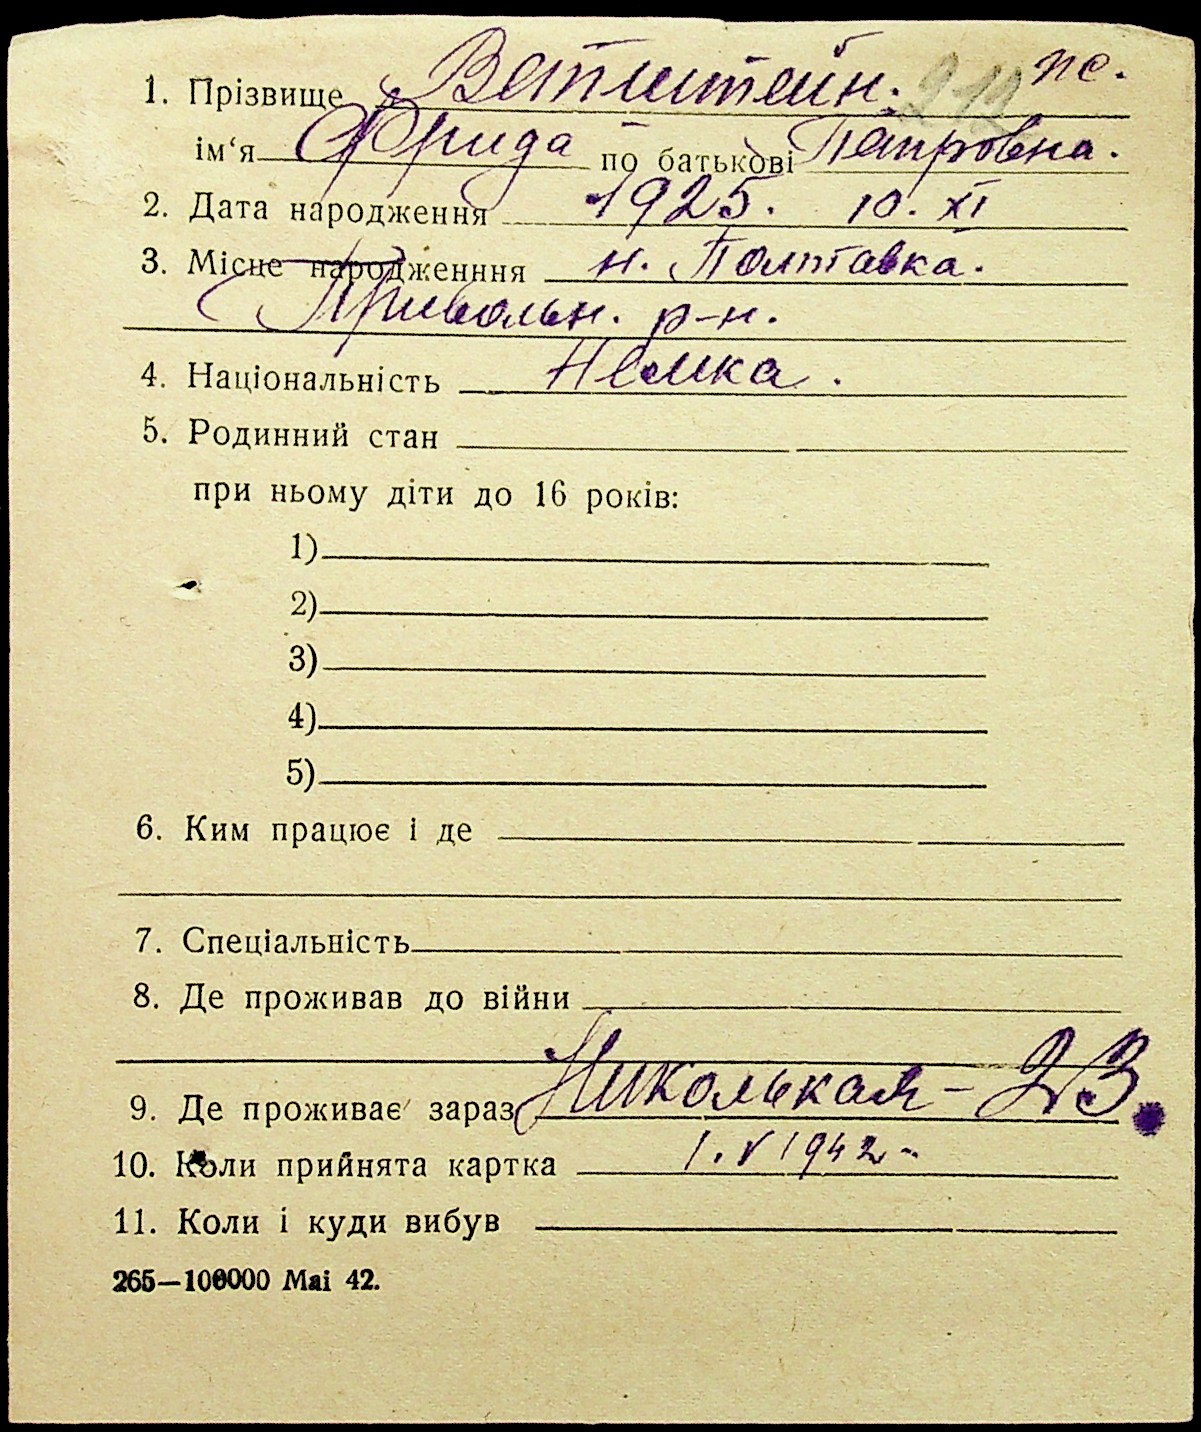 пс.
1. Прізвище Ветштейн. 212
ім‘я Фрида по батькові Петровна.
2. Дата народження 1925. 10. XI
3. Місце народженння н. Полтавка.
Привольн. р-н.
4. Національність Немка.
5. Родинний стан
при ньому діти до 16 років:
1)
2)
3)
4)
5)
6. Ким працює і де
7. Спеціальність
8. Де проживав до війни
9. Де проживає зараз Николькая - 23.
10. Коли прийнята картка 1. V 1942 -
11. Коли і куди вибув
265—100000 Маі 42.